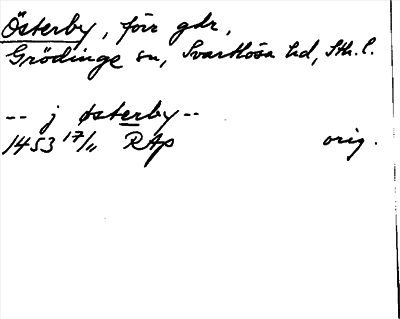 Österby, förr gdr,
Grödinge sn, Svartlösa hd, Sth. l.
-- j østerby --
1453 17/11 RAp orig.